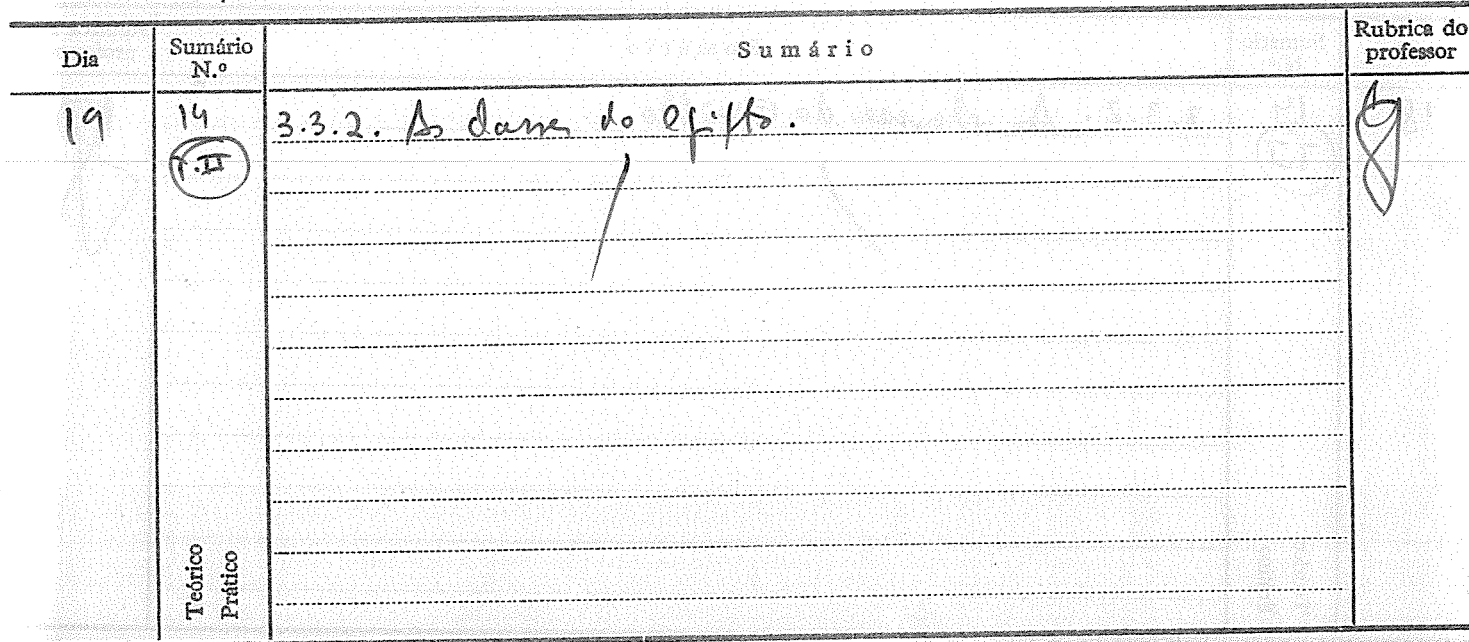 Dia
Sumário N.º
Sumário
Rubrica do professor
19
14
T.II
3.3.2. As do Egipto.
Teórico
Prático